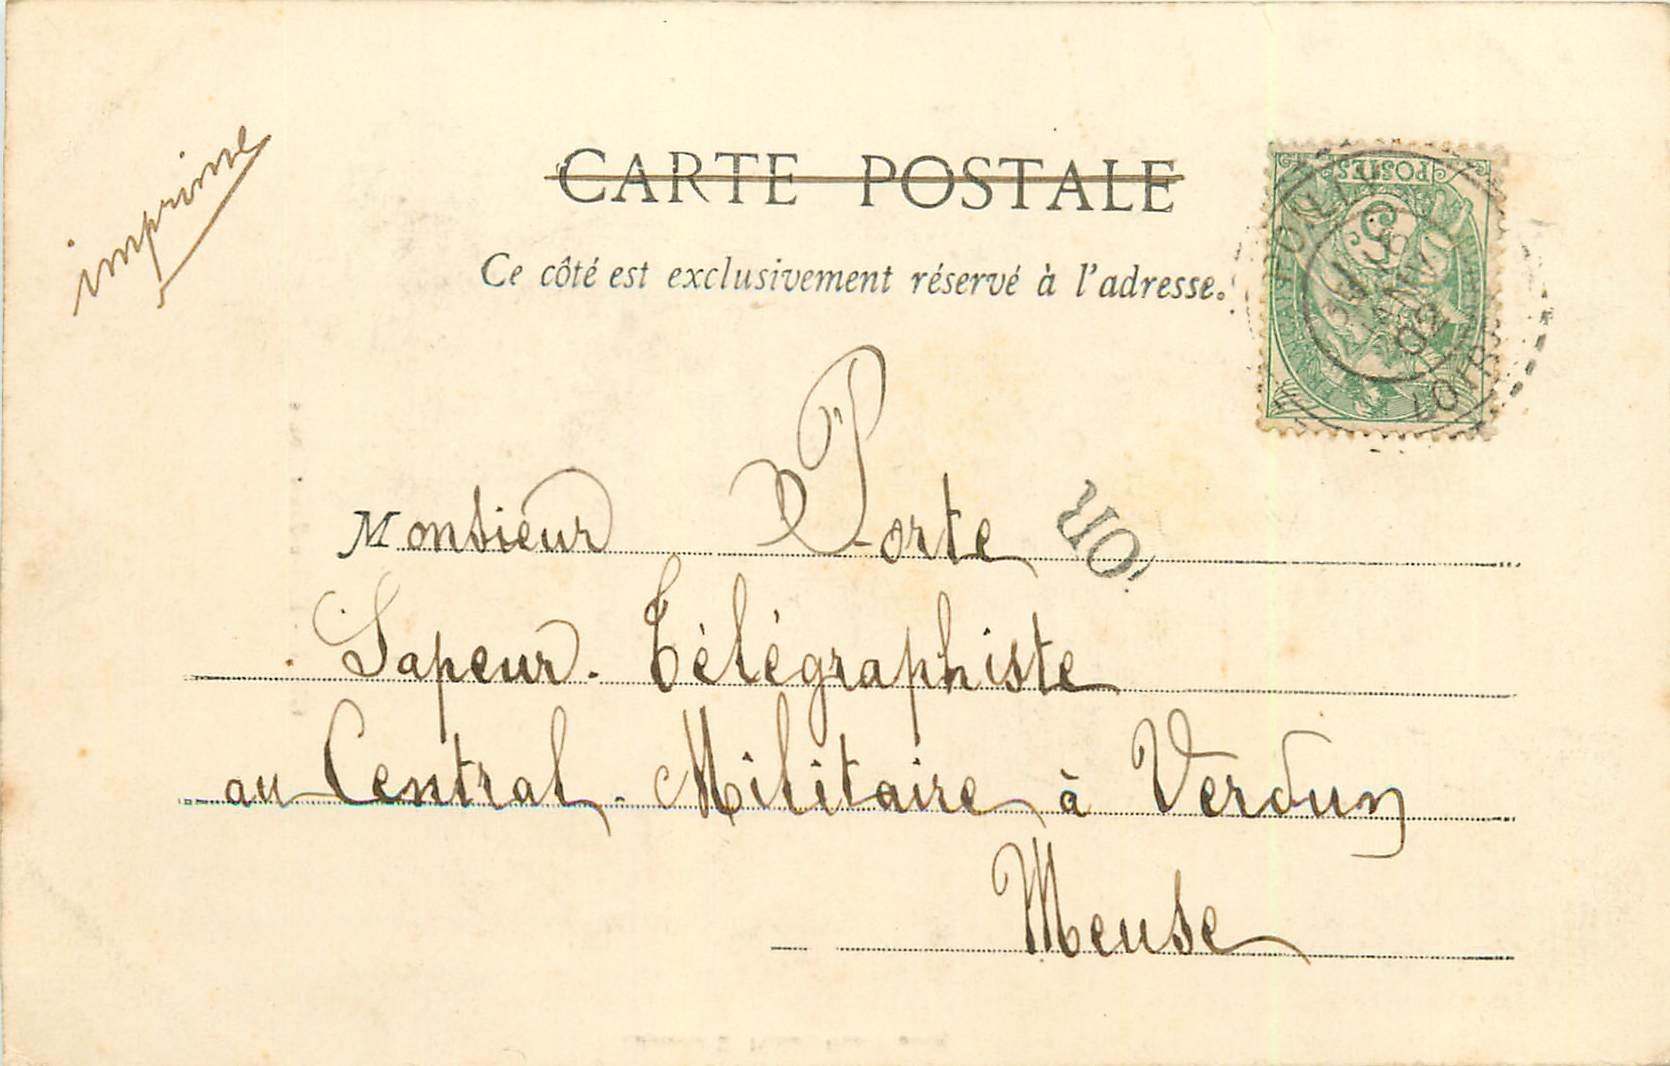 imprimé
CARTE POSTALE
Ce côté est exclusivement réservé à l'adresse.
POSTES
5
02
LOIRE
Monsieur Porte
OR
Sapeur. Télégraphiste
au Central. Militaire à Verdun
Meuse